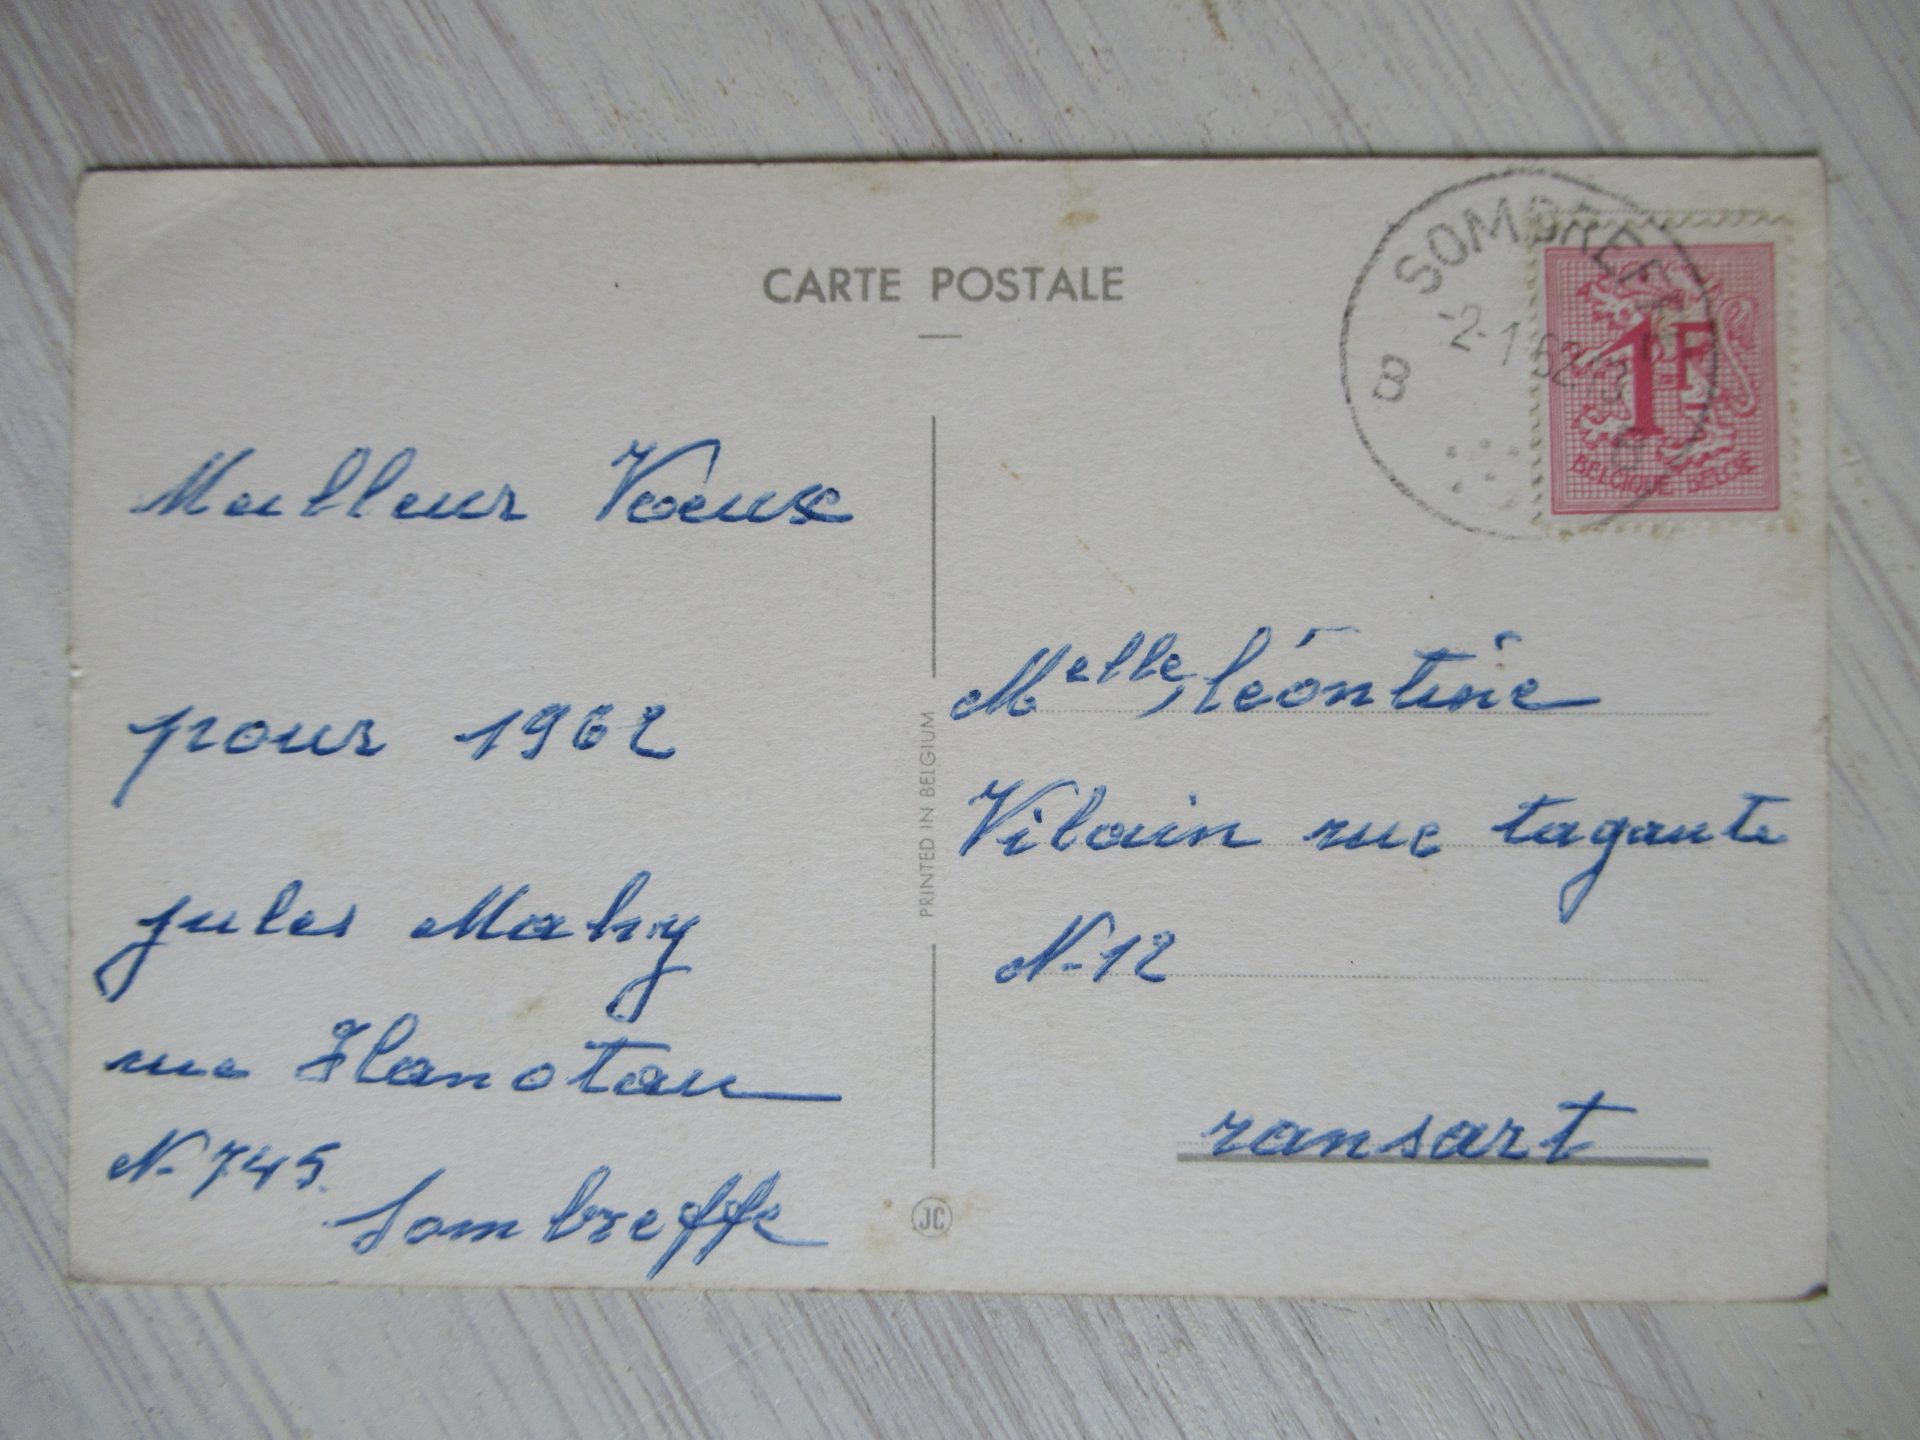 CARTE POSTALE
SOMBREFFE
-2-1 62
B
1F
BELGIQUE BELGIE
Meilleur Voeux
pour 1962
jules Mahy
rue Hanotau
N-745
Sombreffe
PRINTED IN BELGIUM
JC
Melle, léontine
Vilain rue tagante
N-12
ransart